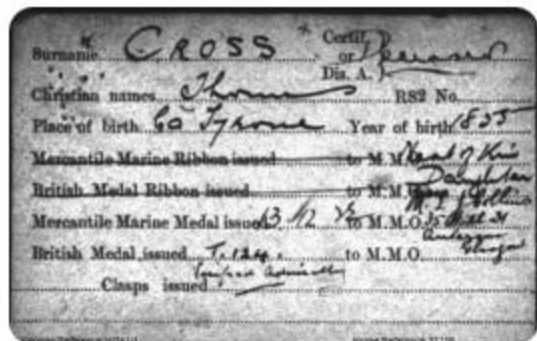 Surname CROSS Certif. or Deceased
Dis. A.
Christian names Thomas RS2 No.
Place of birth Co Tyrone Year of birth 1855
Mercantile Marine Ribbon issued to M.M. Next of Kin
British Medal Ribbon issued to M.M. Daughter
Mercantile Marine Medal issued 13 /12 to M.M.O. Collins
British Medal issued T. 124. to M.M.O. Glasgow
Clasps issued